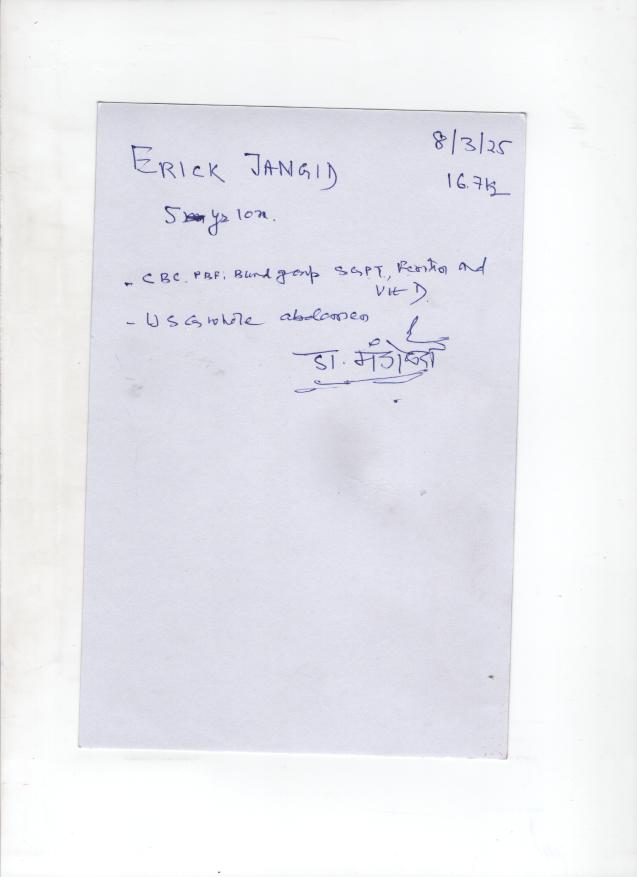 8/3/25
ERICK JANGID
16.7kg
5 yr 10m.
- CBC. PBF. Blood group SGPT, Ferritin and
Vit D.
- USG whole abdomen
डा.